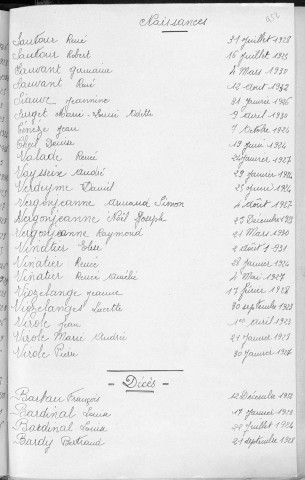 Naissances
Sautour René 31 Juillet 1928
Sautour Robert 16 juillet
Sauvant Germaine 4 Mars 1930
Sauvant René 12 août
Jeannine
Surget Marie-Louise Odette 9 avril 1930
Jean 7 Octobre 1926
Theil Denise 19 Juin 1924
Valade René Janvier 1927
Vayssein André 29 Janvier
Verdeyme Daniel 25 Juin
Vergonjeanne Armand Simon 4 août 1927
Vergonjeanne Noël Joseph Décembre
Vergonjeanne Raymond 21 Mars 1930
Vinatier 2 août 1931
Vinatier René 28 Janvier
Vinatier Renée Amélie 4 Mai 1927
Viozelange Jeanne 17 février 1928
Viozelanges Lucette 30 septembre 1928
Virole Jean 1er avril 1923
Virole Marie Andrée 21 Janvier
Virole Pierre 30 Janvier
- Décès -
François Décembre
Bardinal Louis 17 Janvier
Bardinal Louis Juillet 1924
Bardy Bertrand 21 septembre 1928